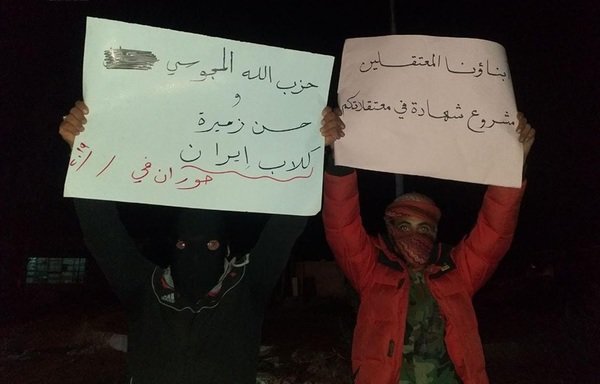 حزب الله المجوسي
و
حسن زميرة
كلاب إيران
حوران في / /
بناؤنا المعتقلين
مشروع شهادة في معتقلاتكم